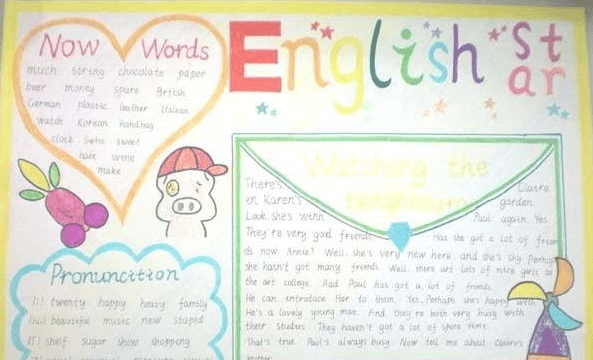 Now Words
much string chocolate paper
beer money spare British
German plastic leather Italian
watch Korean handbag
clock Swiss sweet
hate wine
make
English
St
ar
Watching the
neighbours
There's Claire
in Karen's garden.
Look, she's with Paul again. Yes.
They're very good friends. Has she got a lot of frien
ds now. Annie? Well, she's very new here. and she's shy. Perhaps
she hasn't got many friends. Well, there are lots of nice girls at
the art college. And Paul has got a lot of friends.
He can introduce Her to them. Yes, Perhaps she's happy with
He's a lovely young man. And they're both very busy with
their studies. They haven't got a lot of spare time.
That's true. Paul's always busy. Now tell me about Claire's
mother.
Pronunciation
twenty happy heavy family
beautiful music new stupid
shelf sugar show shopping